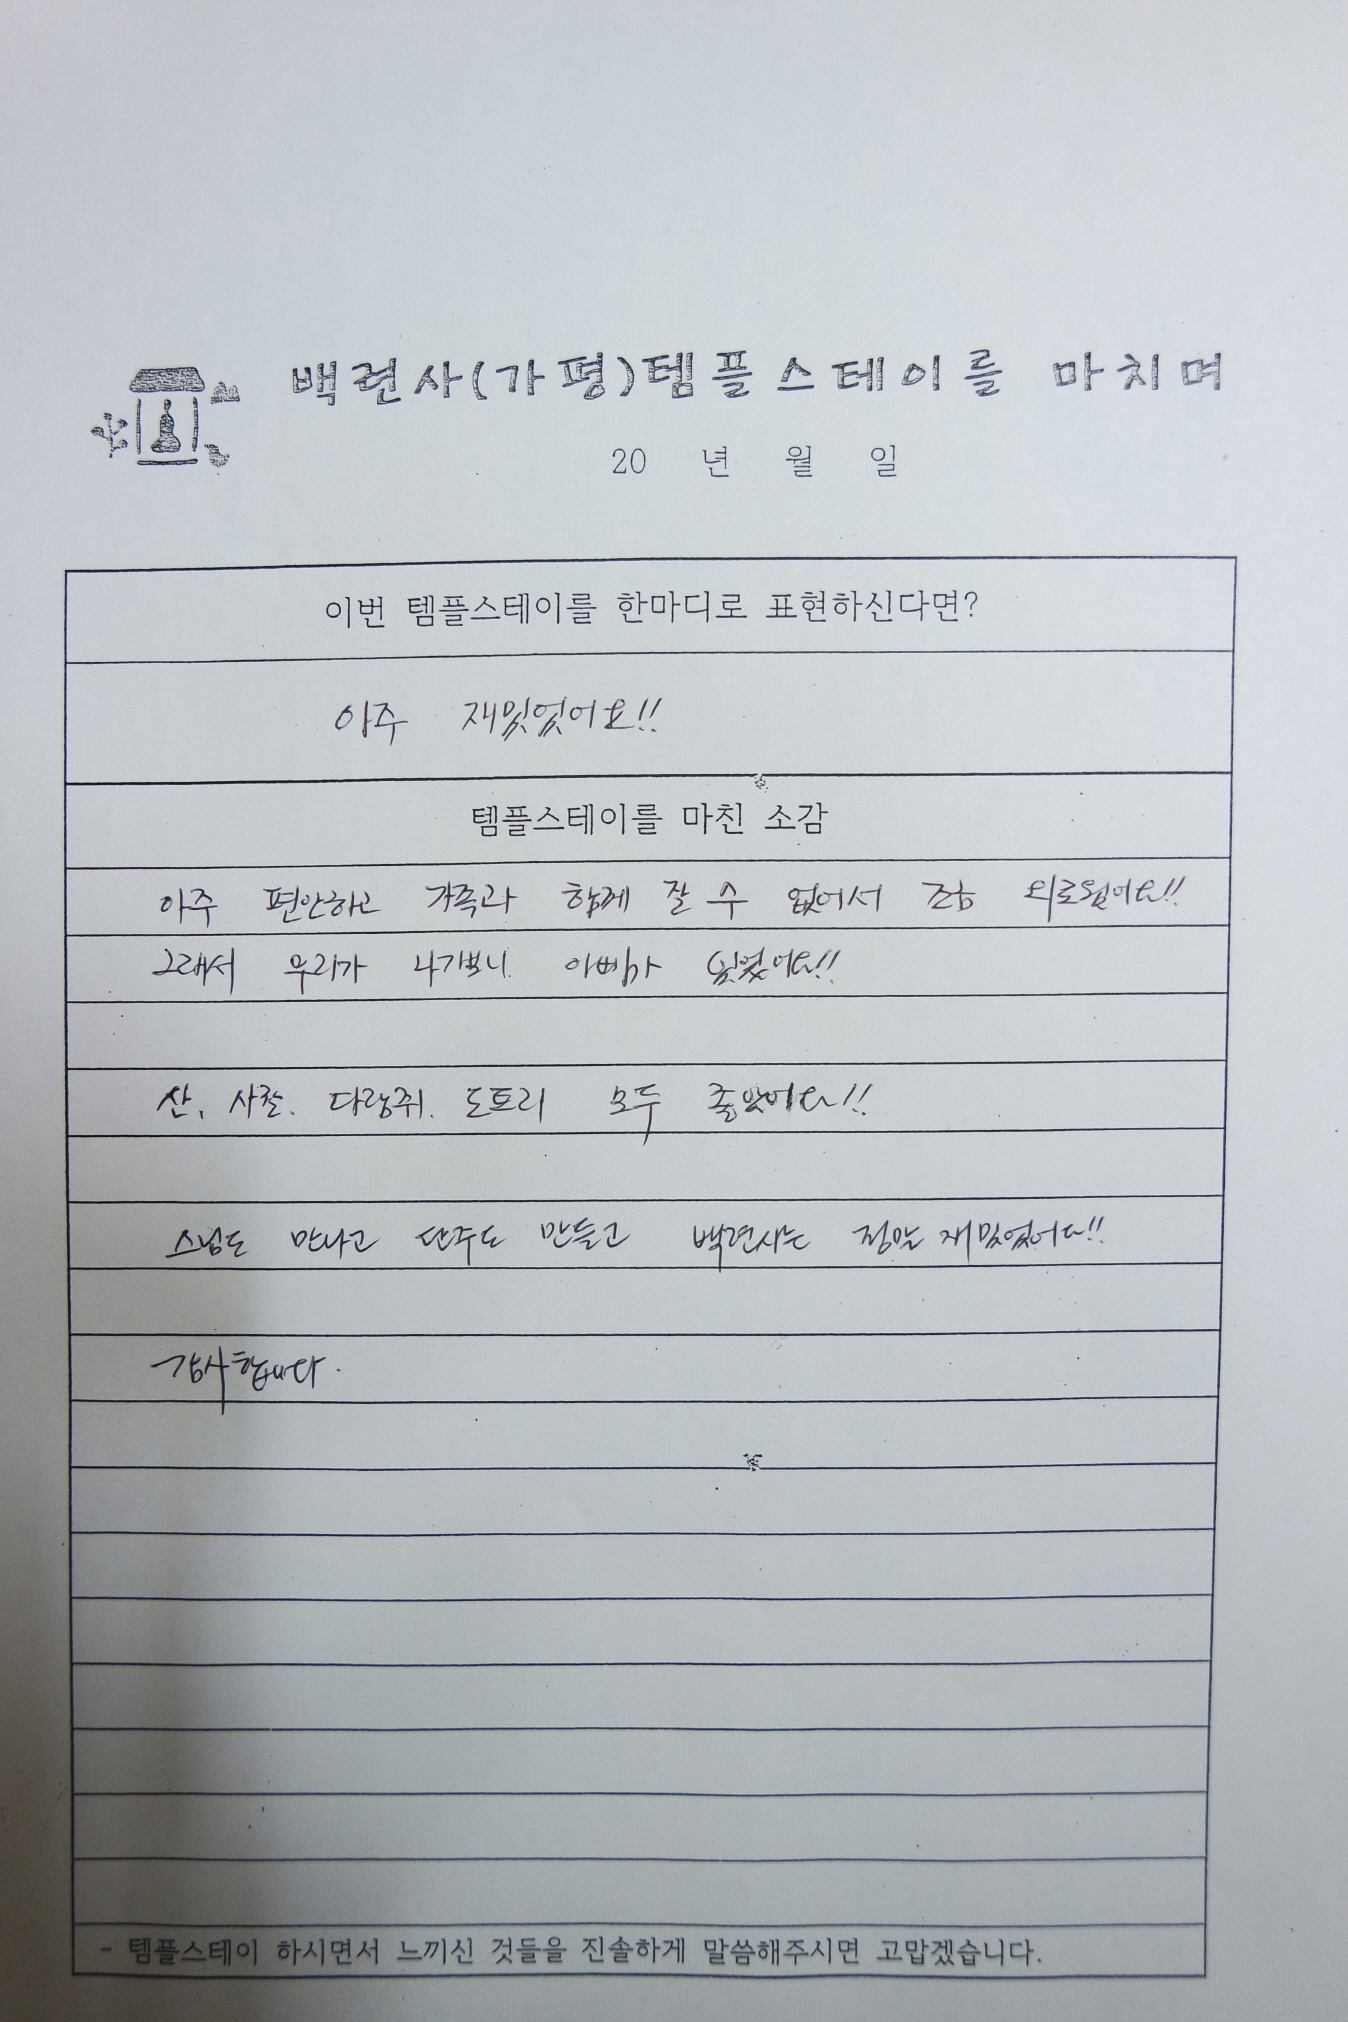 백련사(가평)템플스테이를 마치며
20 년 월 일
이번 템플스테이를 한마디로 표현하신다면?
아주 재밌었어요!!
템플스테이를 마친 소감
아주 편안하고 가족과 함께 잘 수 없어서 조금 외로웠어요!!
그래서 우리가 나가보니 아빠가 있었어요!!
산, 사찰, 다람쥐, 도토리 모두 좋았어요!!
스님도 만나고 단주도 만들고 백련사는 정말 재밌었어요!!
감사합니다.
- 템플스테이 하시면서 느끼신 것들을 진솔하게 말씀해주시면 고맙겠습니다.